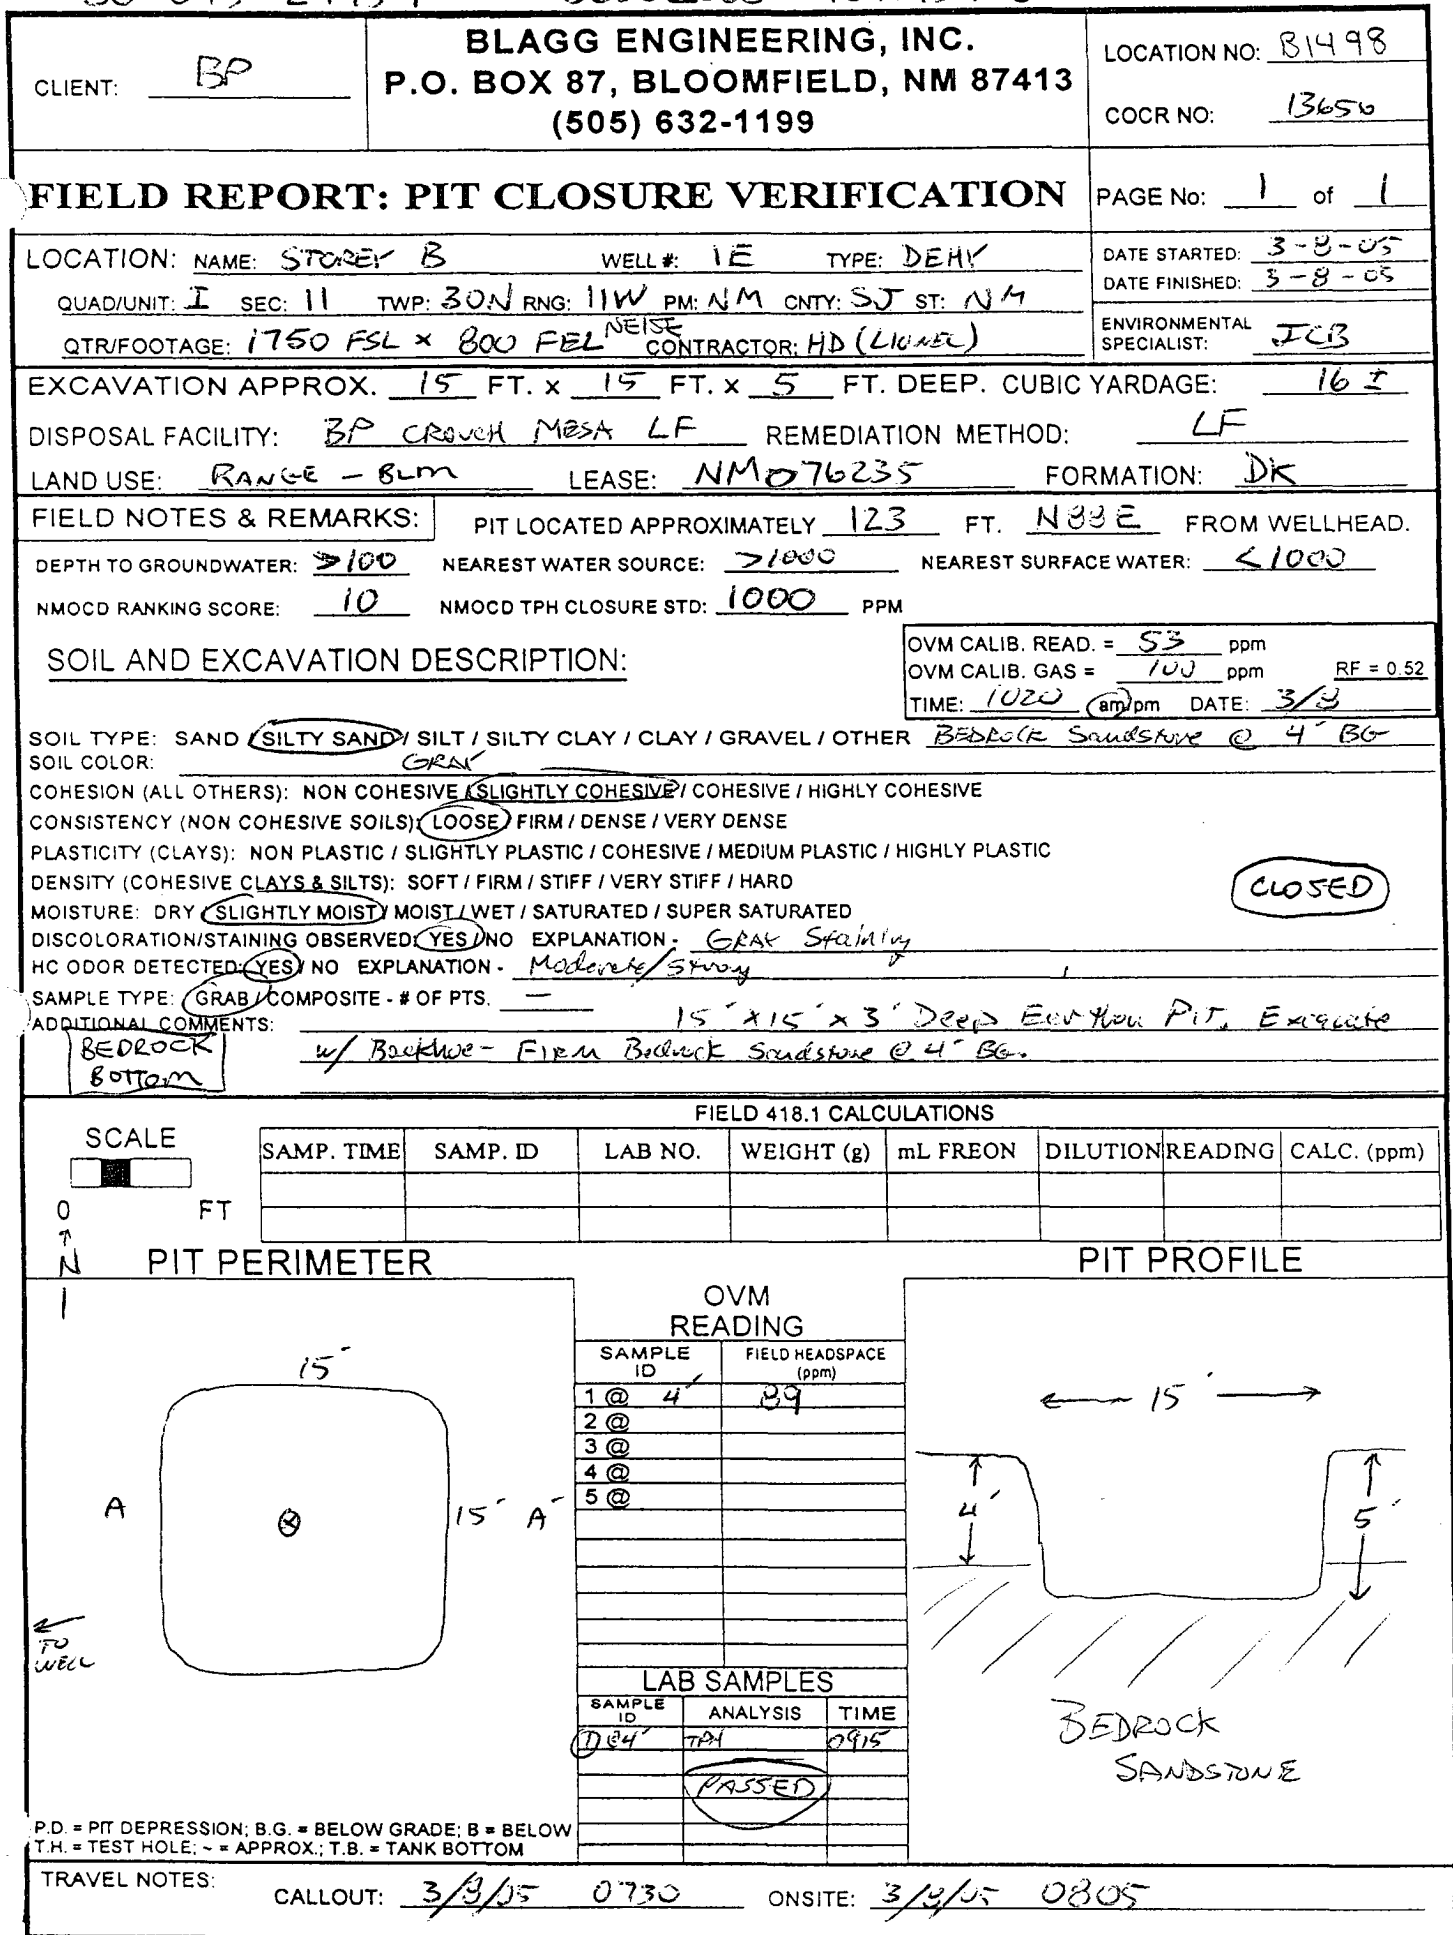 BLAGG ENGINEERING, INC.
P.O. BOX 87, BLOOMFIELD, NM 87413
(505) 632-1199
CLIENT: BP
LOCATION NO: B1498
COCR NO: 13650
FIELD REPORT: PIT CLOSURE VERIFICATION
PAGE No: 1 of 1
LOCATION: NAME: STOREY B WELL #: 1E TYPE: DEHY
QUAD/UNIT: I SEC: 11 TWP: 30N RNG: 11W PM: NM CNTY: SJ ST: NM
QTR/FOOTAGE: 1750 FSL x 800 FEL NE/SE CONTRACTOR: HD (LIONEL)
DATE STARTED: 3-8-05
DATE FINISHED: 3-8-05
ENVIRONMENTAL
SPECIALIST: JCB
EXCAVATION APPROX. 15 FT. x 15 FT. x 5 FT. DEEP. CUBIC YARDAGE: 16 ±
DISPOSAL FACILITY: BP CROUCH MESA LF REMEDIATION METHOD: LF
LAND USE: RANGE - BLM LEASE: NM076235 FORMATION: DK
FIELD NOTES & REMARKS: PIT LOCATED APPROXIMATELY 123 FT. N88E FROM WELLHEAD.
DEPTH TO GROUNDWATER: >100 NEAREST WATER SOURCE: >1000 NEAREST SURFACE WATER: <1000
NMOCD RANKING SCORE: 10 NMOCD TPH CLOSURE STD: 1000 PPM
SOIL AND EXCAVATION DESCRIPTION:
OVM CALIB. READ. = 53 ppm
OVM CALIB. GAS = 100 ppm RF = 0.52
TIME: 1020 am/pm DATE: 3/8
SOIL TYPE: SAND / SILTY SAND / SILT / SILTY CLAY / CLAY / GRAVEL / OTHER BEDROCK Sandstone @ 4' BG
SOIL COLOR: GRAY
COHESION (ALL OTHERS): NON COHESIVE / SLIGHTLY COHESIVE / COHESIVE / HIGHLY COHESIVE
CONSISTENCY (NON COHESIVE SOILS): LOOSE / FIRM / DENSE / VERY DENSE
PLASTICITY (CLAYS): NON PLASTIC / SLIGHTLY PLASTIC / COHESIVE / MEDIUM PLASTIC / HIGHLY PLASTIC
DENSITY (COHESIVE CLAYS & SILTS): SOFT / FIRM / STIFF / VERY STIFF / HARD
CLOSED
MOISTURE: DRY / SLIGHTLY MOIST / MOIST / WET / SATURATED / SUPER SATURATED
DISCOLORATION/STAINING OBSERVED: YES / NO EXPLANATION - GRAY Staining
HC ODOR DETECTED: YES / NO EXPLANATION - Moderate/Strong
SAMPLE TYPE: GRAB / COMPOSITE - # OF PTS. —
ADDITIONAL COMMENTS: 15' x 15' x 3' Deep Earthen Pit.
w/ Backhoe - Firm Bedrock Sandstone @ 4' BG.
BEDROCK
BOTTOM
FIELD 418.1 CALCULATIONS
SCALE
0 FT
SAMP. TIME SAMP. ID LAB NO. WEIGHT (g) mL FREON DILUTION READING CALC. (ppm)
N
PIT PERIMETER
PIT PROFILE
OVM
READING
SAMPLE
ID
FIELD HEADSPACE
(ppm)
1 @ 4' 89
2 @
3 @
4 @
5 @
15'
A
15' A'
TO
WELL
15'
4'
5'
BEDROCK
SANDSTONE
LAB SAMPLES
SAMPLE
ID
ANALYSIS TIME
1 @ 4' TPH 0915
PASSED
P.D. = PIT DEPRESSION; B.G. = BELOW GRADE; B = BELOW
T.H. = TEST HOLE; ~ = APPROX.; T.B. = TANK BOTTOM
TRAVEL NOTES:
CALLOUT: 3/8/05 0730 ONSITE: 3/8/05 0805